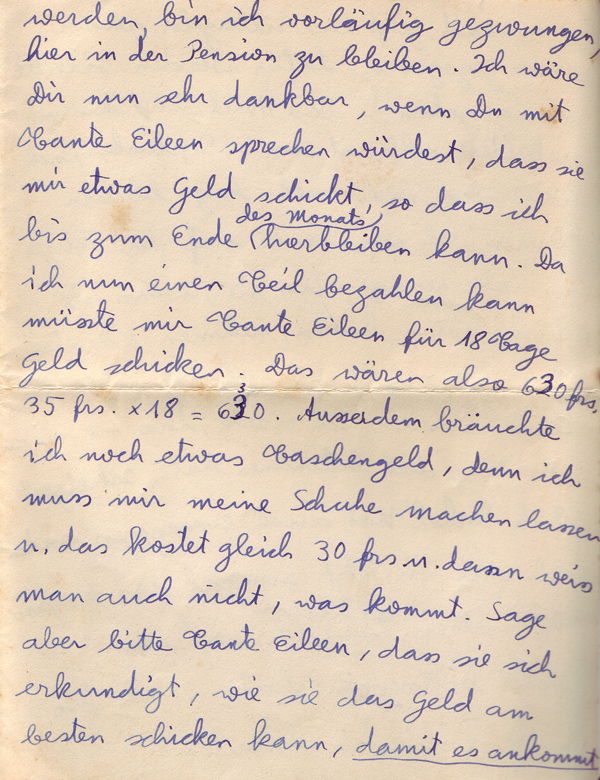 werden, bin ich vorläufig gezwungen,
hier in der Pension zu bleiben. Ich wäre
Dir nun sehr dankbar, wenn Du mit
Tante Eileen sprechen würdest, dass sie
mir etwas Geld schickt, so dass ich
des Monats
bis zum Ende hierbleiben kann. Da
ich nun einen Teil bezahlen kann
müsste mir Tante Eileen für 18 Tage
Geld schicken. Das wären also 630 frs.
3
35 frs. x 18 = 630. Ausserdem bräuchte
ich noch etwas Taschengeld, denn ich
muss mir meine Schuhe machen lassen
u. das kostet gleich 30 frs u. dann weiss
man auch nicht, was kommt. Sage
aber bitte Tante Eileen, dass sie sich
erkundigt, wie sie das Geld am
besten schicken kann, damit es ankommt